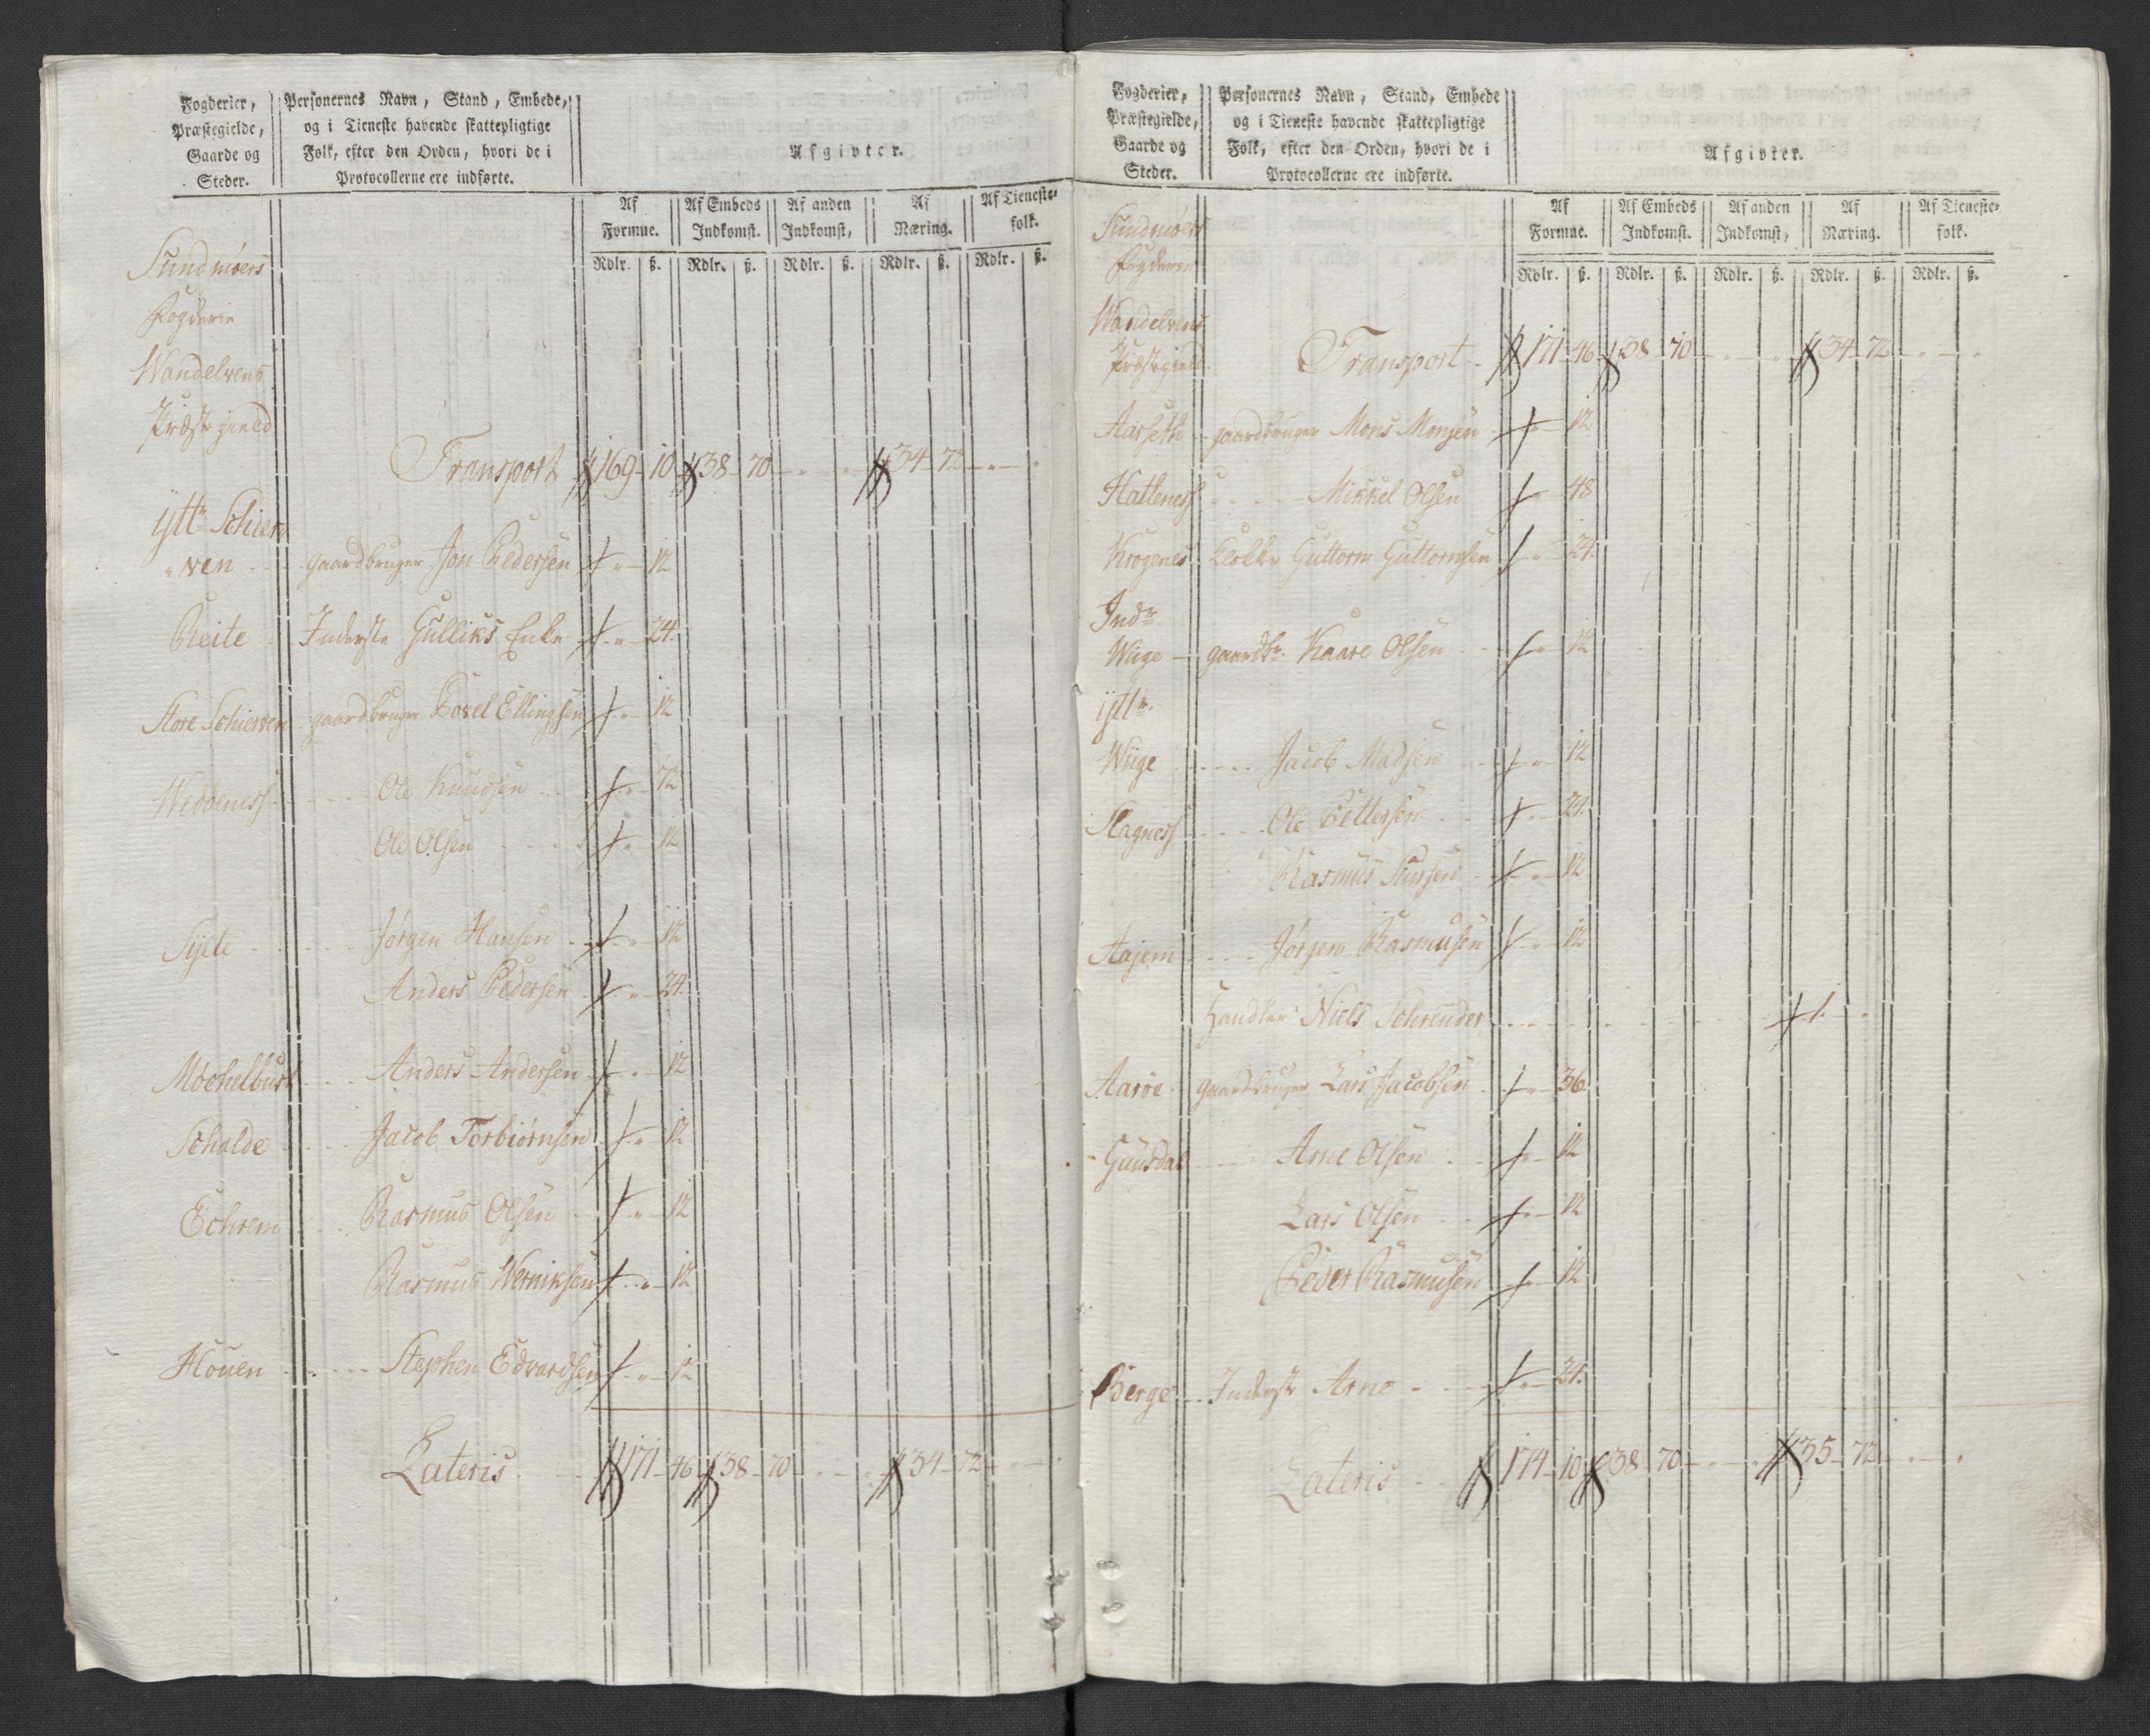 Fogderier, Præstegielde, Gaarde og Steder.
Personernes Navn, Stand, Embede, og i Tieneste havende skattepligtige Folk, efter den Orden, hvori de i Protocollerne ere indførte.
Afgivter.
Af Formue. Af Embeds Indkomst. Af anden Indkomst, Af Næring. Af Tieneste-folk.
Rdlr. ß. Rdlr. ß. Rdlr. ß. Rdlr. ß. Rdlr. ß.
Sundmøers
Fogderie
Wandelvens
Præstegield
Transport 169 - 10 38 - 70 - " - " 34 - 72 - " - "
ÿttr Schier
"ven - gaardbruger Jon Pedersen " - 12
Reite Inderste Gulliks Enke " - 24.
Store Schierven gaardbruger Povel Ellingsen " - 12
Weddeness Ole Knudsen " - 72
Ole Olsen " - 12
Sÿete Jørgen Hansen " - 12
Anders Pedersen " - 24.
Mochelbust Anders Andersen " - 12
Scholde Jacob Torbiørnsen " - 12
Echrem Rasmus Olsen " - 12
Rasmus Werniksen " - 12
Houen Stephen Edvardsen " - 12
Lateris 171 - 46 38 - 70 - " - " 34 - 72 - " - "
Fogderier, Præstegielde, Gaarde og Steder.
Personernes Navn, Stand, Embede og i Tieneste havende skattepligtige Folk, efter den Orden, hvori de i Protocollerne ere indførte.
Afgivter.
Af Formue. Af Embeds Indkomst. Af anden Indkomst, Af Næring. Af Tieneste-folk.
Rdlr. ß. Rdlr. ß. Rdlr. ß. Rdlr. ß. Rdlr. ß.
Sundmøers
Fogderie
Wandelvens
Præstegield.
Transport - 171 - 46 38 - 70 - " - " 34 - 72 - " - "
Aarseth gaardbruger Mons Monsen " - 12
Hatleness Mikkel Olsen " - 48
Krogenes Guttorm Guttormsen " - 24.
Indr
Wiige - gaardbr. Kaare Olsen " - 12
ÿttr.
Wiige Jacob Madsen " - 12
Slagness Ole Pettersen " - 24.
Rasmus " - 12
Aajem Jørgen Rasmusen " - 12
Handler Niels Schreuder 1. - "
Aarøe gaardbruger Lars Jacobsen " - 36.
Guusdal Arne Olsen " - 12
Lars Olsen " - 12
Peder Rasmusen " - 12
Berge Inderst Arne " - 24.
Lateris 174 - 10 38 - 70 - " - " 35 - 72 - " - "